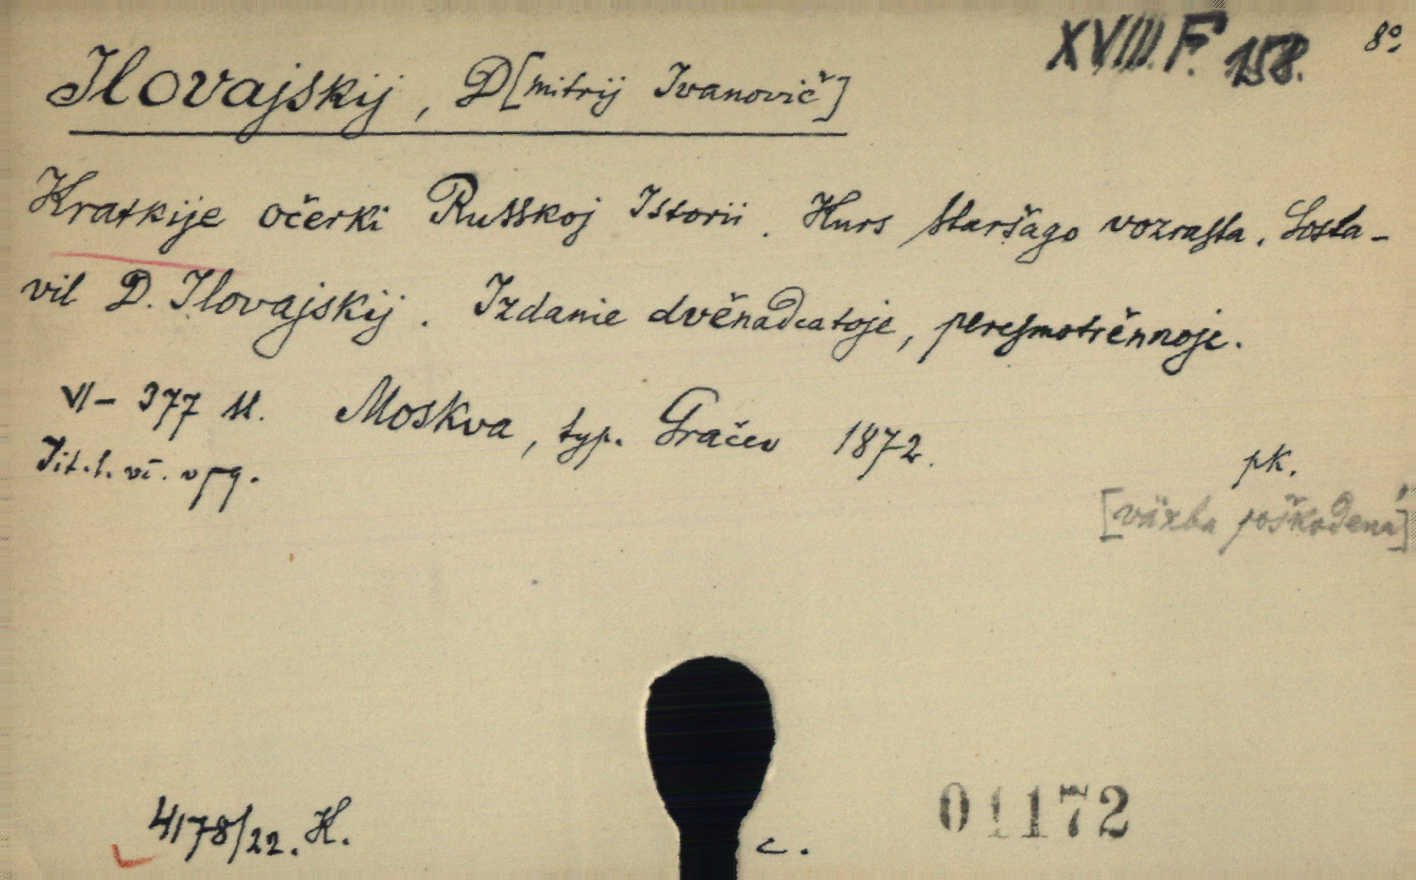 XVIII. F. 158. 8°.
Ilovajskij, D[mitrij Ivanovič]
Kratkije očerki Russkoj Istorii. Kurs staršago vozrasta. Sosta-
vil D. Ilovajskij. Izdanie dvěnadcatoje, peresmotrěnnoje.
VI – 377 ss. Moskva, typ. Gračev 1872.
Tit. l. vč.
pk.
[vazba poškodena]
4178/22. K.
c.
01172